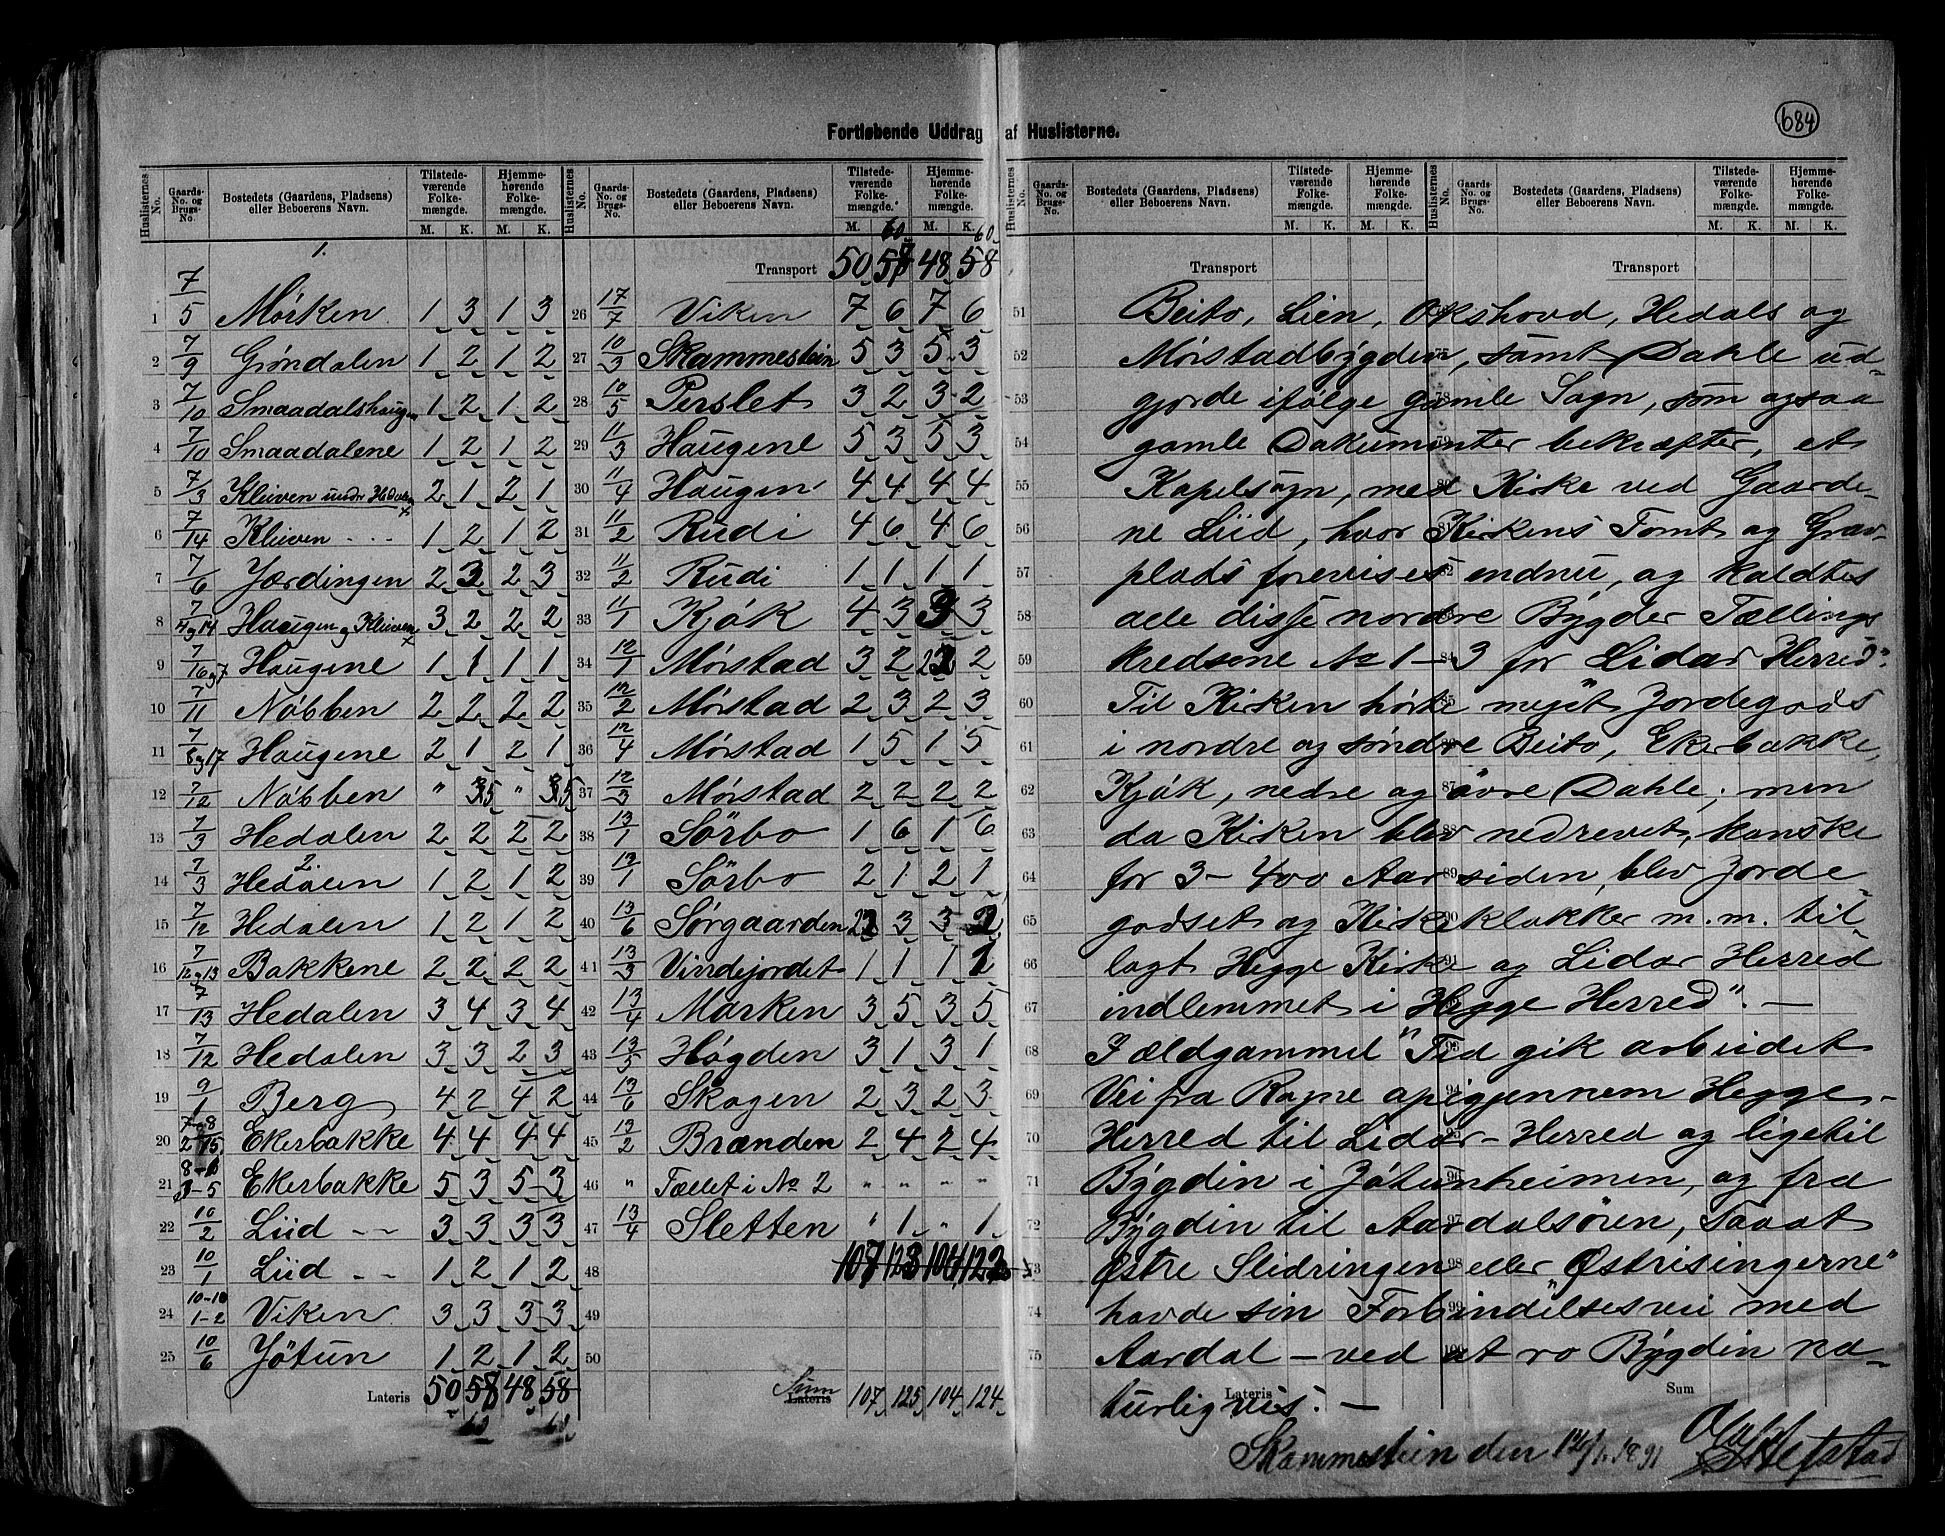 684
Fortløbende Uddrag af Huslisterne.
Huslisternes No. Gaards-No. og Brugs-No. Bostedets (Gaardens, Pladsens) eller Beboerens Navn. Tilstedeværende Folkemængde. M. K. Hjemmehørende Folkemængde. M. K.
1.
1 7/5 Mørken 1 3 1 3
2 7/9 Grøndalen 1 2 1 2
3 7/10 Smaadalshaugen 1 2 1 2
4 7/10 Smaadalene 1 2 1 2
5 7/3 Klüven undr Hedalen 2 1 2 1
6 7/14 Klüven - - - 1 2 1 2
7 7/6 Jærdingen 2 3 2 3
8 7/4 og 14 Haugen og Klüven 3 2 2 2
9 7/16 og 7 Haugene 1 1 1 1
10 7/11 Nøbben 2 2 2 2
11 7/8 og 17 Haugene 2 1 2 1
12 7/12 Nøbben " 5 " 5
13 7/3 Hedalen 2 2 2 2
2.
14 7/3 Hedalen 1 2 1 2
15 7/12 Hedalen 1 2 1 2
16 7/12 og 13 Bakkene 2 2 2 2
17 7/13 Hedalen 3 4 3 4
18 7/12 Hedalen 3 3 2 3
19 9/1 Berg 4 2 4 2
20 7 og 8/2 Ekerbakke 4 4 4 4
21 Ekerbakke 5 3 5 3
22 10/2 Liid - - 3 3 3 3
23 10/1 Liid - - 1 2 1 2
24 10-10/1-2 Viken 3 3 3 3
25 10/6 Jøtun 1 2 1 2
Lateris 50 58 48 58
60 60
60 60
Transport 50 58 48 58
26 17/7 Viken 7 6 7 6
27 10/3 Skammestein 5 3 5 3
28 10/5 Perslet 3 2 3 2
29 11/3 Haugene 5 3 5 3
30 11/4 Haugen 4 4 4 4
31 11/2 Rudi 4 6 4 6
32 11/2 Rudi 1 1 1 1
33 11/1 Kjøk 4 3 3 3
34 12/1 Mørstad 3 2 2 2
35 12/2 Mørstad 2 3 2 3
36 12/4 Mørstad 1 5 1 5
37 12/3 Mørstad 2 2 2 2
38 13/1 Sørbo 1 6 1 6
39 13/1 Sørbo 2 1 2 1
40 13/6 Sørgaarden 3 3
41 13/3 Vindejordet 1 1 1 1
42 13/4 Marken 3 5 3 5
43 13/5 Høgden 3 1 3 1
44 13/6 Skogen 2 3 2 3
45 13/2 Brænden 2 4 2 4
46 " Tællet i No 2 " " " "
47 13/4 Sletten " 1 " 1
48 107 123 104 122
49
50
Sum Lateris 107 125 104 124
Transport Transport
Beito, Lien, Okshovd, Hedals og
Mørstadbygden, samt Dahle ud-
gjorde ifølge gamle Sagn, som ogsaa
gamle Dokumenter bekræfter, et
Kapelsogn, med Kirke ved Gaarde-
ne Liid, hvor Kirkens Tomt og Grav-
plads forevises endnu, og kaldtes
dele disse nordre Bygder Tællings
kredsene No 1-3 for Lidar Herred".
Til Kirken hørte meget Jordegods
i nordre og søndre Beito, Ekerbakke,
Kjøk, nedre og øvre Dahle; men
da Kirken blev nedrevet, kanske
for 3-400 Aar siden, blev Jorde
godset og Kirkeklokker m. m. til-
lagt Hegge Kirke og Lidar Herred
indlemmet i Hegge Herred". -
I ældgammel Tid gik arbeidet
Vei fra Rogne op igjennem Hegge-
Herred til Lidar-Herred og ligetil
Bygdin i Jøtunheimen, og fra
Bygdin til Aardalsøren, saaat
østre Slidringen eller "Østrisingerne"
havde sin Forbindelsesvei med
Aardal - ved at ro Bygdin na-
turligvis. -
Lateris Sum
Skammestein den 14/1 1891